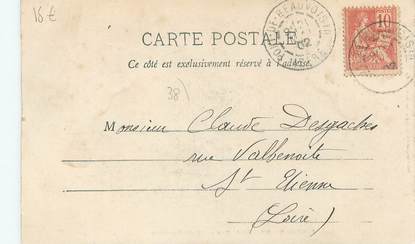 18 €
PONT-DE-BEAUVOISIN
02
10
CARTE POSTALE
Ce côté est exclusivement réservé à l'adresse.
38)
Monsieur Claude Desgaches
rue Valbenoite
St Etienne
(Loire)